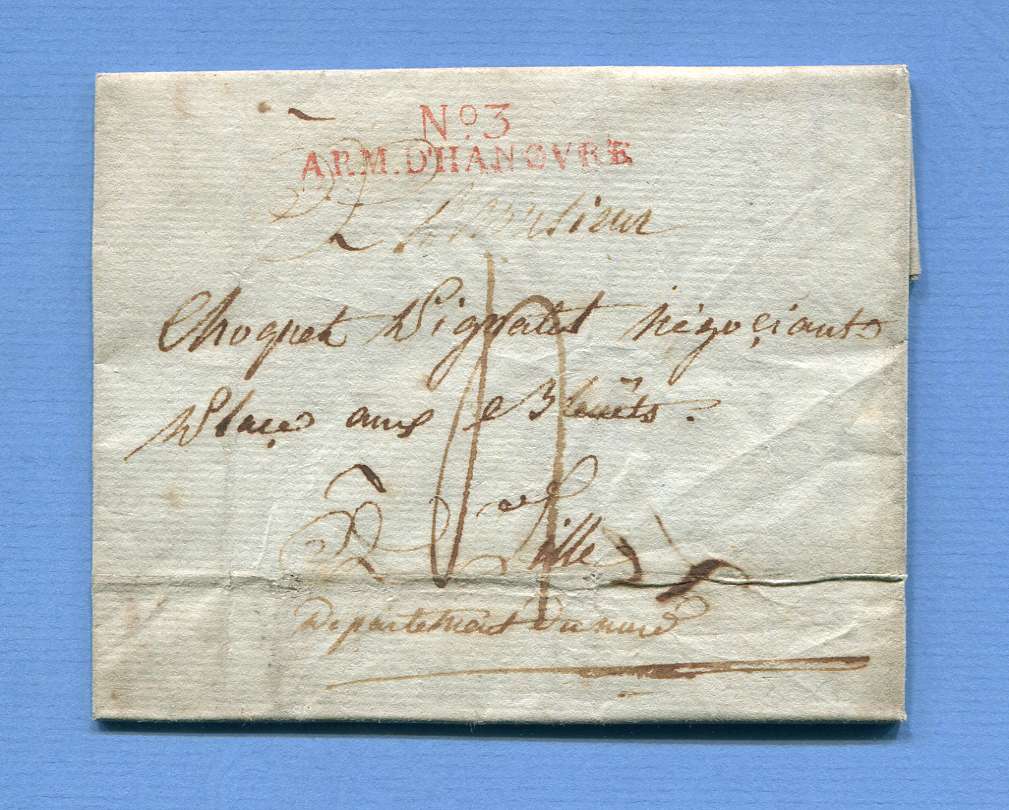 No. 3
ARM. D'HANOVRE
A Monsieur
Choquet négociant
place aux Bleuëts.
a Lille
Departement du nord